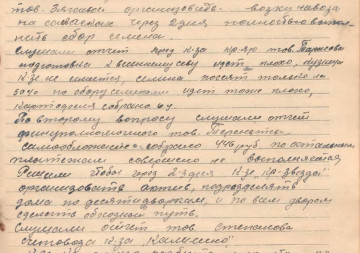 тов. Зязевой организовать возку навоза
на собаках через 2 дня полностью выпол-
нить сбор семена.
Слушали отчет пред. к-за кр-яр тов. Тарасова
подготовка к весеннему севу идет плохо, кузница
К-зе не имеется, семена посеят только на
50% по оборудованию идет тоже плохо,
картофеля собрано 6 ц.
По второму вопросу слушали отчет
финуполномоченного тов.
самообложение собрано 446 руб. по остальным
платежам совершенно не выполняется,
Решили чтобы через 2-3 дня К-зе кр-звезда"
организовать актив, подразделять
дома по десятидворкам, и по всем дворам
сделать обходным путь.
Слушали отчет тов. Степанова
счетовода к-за Калинино"